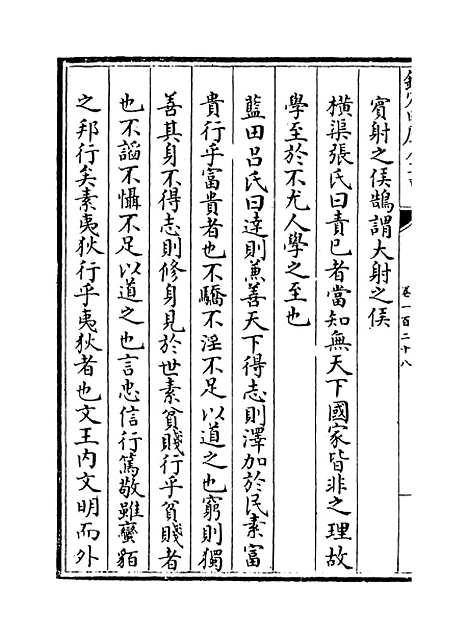 賔射之侯鵠謂大射之侯
橫渠張氏曰責已者當知無天下國家皆非之理故
學至於不尤人學之至也
藍田呂氏曰達則兼善天下得志則澤加於民素富
貴行乎富貴者也不驕不淫不足以道之也窮則獨
善其身不得志則修身見於世素貧賤行乎貧賤者
也不謟不懾不足以道之也言忠信行篤敬雖蠻貊
之邦行矣素夷狄行乎夷狄者也文王内文明而外
卷一百二十八